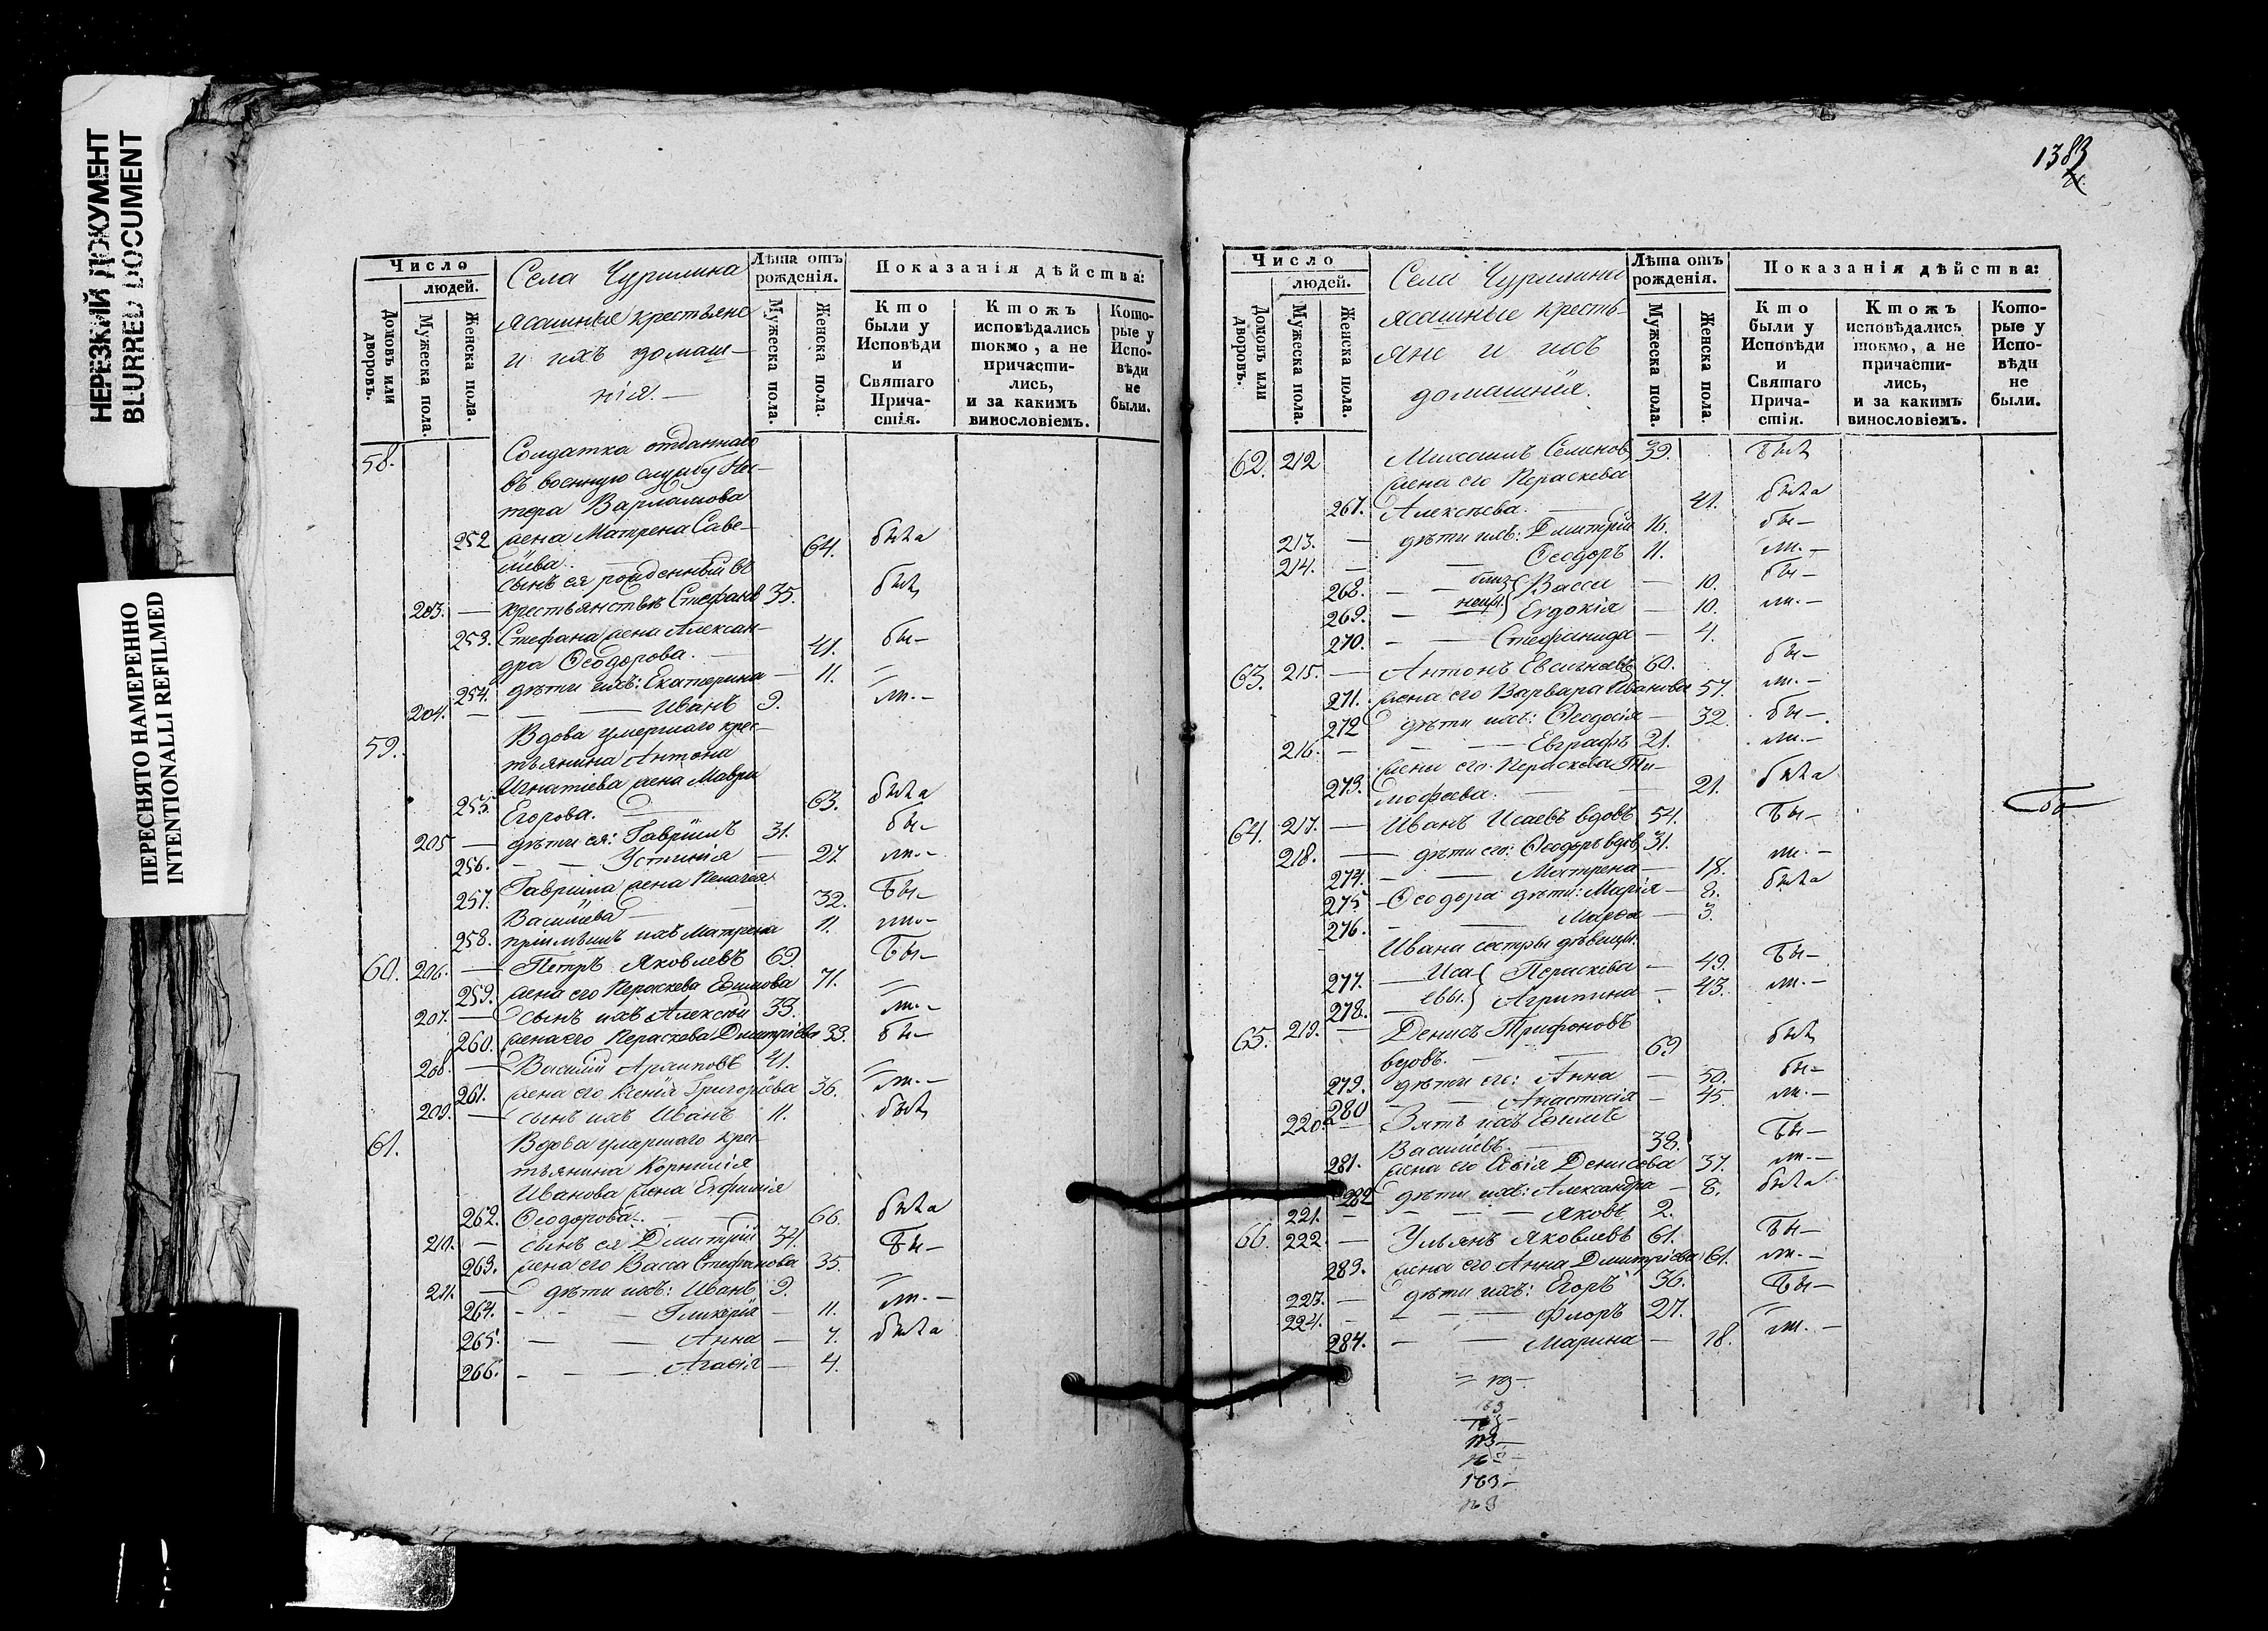 НЕРЕЗКИЙ ДОКУМЕНТ
BLURRED DOCUMENT
ПЕРЕСНЯТО НАМЕРЕННО
INTENTIONALLI REFILMED
Число
людей.
Домовъ или дворовъ.
Мужеска пола.
Женска пола.
Села Чурилина
ясашные крестьяне
и ихъ домаш-
нія. —
Лѣта отъ рожденія.
Мужеска пола.
Женска пола.
Показанія дѣйства:
Кто были у Исповѣди и Святаго Прича-стія.
Ктожъ исповѣдались токмо, а не причасти-лись, и за какимъ винословіемъ.
Кото-рые у Испо-вѣди не были.
58. Солдатка отданнаго
въ военную службу Нес-
тера Варламова
252 жена Матрена Саве-
ліева. 64. была
сынъ ея рожденный въ
203. — крестьянствѣ Стефанъ 35. былъ
253. Стефана жена Алексан-
дра Ѳеодорова. — 41. бы-
254. дѣти ихъ: Екатерина — 11. =
204. — — Иванъ 9. ли. -
59. Вдова умершаго крес-
тьянина Антона
Игнатіева жена Мавра
255. Егорова. 63. была
205 — дѣти ея: Гавріилъ 31. бы-
256. — — Устинія — 27. ли. -
257. Гавріила жена Пелагея
Васильева — 32. Бы-
258. пріимышъ ихъ Матрена 11. ли-
60. 206. — Петръ Яковлевъ 69. Бы-
259. жена его Параскева Ефимова 71. =
207. — сынъ ихъ Алексѣй 33. ли. -
260. жена его Параскева Димитріева 33. бы-
208. — Василій Архиповъ 41. =
261. жена его Ксенія Григорьева 36. ли. -
209. — сынъ ихъ Иванъ 11. былъ
61. Вдова умершаго крес-
тьянина Корнилія
Иванова жена Евфимія
262. Ѳеодорова. — 66. была
210. — сынъ ея Димитрій 34. Бы-
263. жена его Васса Стефанова 35. =
211. — дѣти ихъ: Иванъ 9.
264. - - — Гликерія — 11. ли. -
265. — — Анна — 7. была
266. - — — Агафія — 4.
1383
Число
людей.
Домовъ или дворовъ.
Мужеска пола.
Женска пола.
Села Чурилина
ясашные кресть-
яне и ихъ
домашнія.
Лѣта отъ рожденія.
Мужеска пола.
Женска пола.
Показанія дѣйства:
Кто были у Исповѣди и Святаго Прича-стія.
Ктожъ исповѣдались токмо, а не причасти-лись, и за какимъ винословіемъ.
Кото-рые у Испо-вѣди не были.
62. 212 Михаилъ Семеновъ 39. Былъ
жена его Параскева
267. Алексѣева. — 41. была
213. — дѣти ихъ: Димитрій 16. бы-
214. — — Ѳеодоръ 11. ли. -
268. — — близ- { Васса — 10. бы-
269. — нецы. } Евдокія — 10. ли. -
270. - — Стефанида — 4.
63. 215. — Антонъ Евсигнеевъ 60. бы-
271. жена его Варвара Иванова 57. ли. -
272 дѣти ихъ: Ѳеодосія — 32. бы-
216. — — — Евграфъ 21. ли. -
жена его Параскева Ти-
273. мофеева. — 21. была
64. 217. — Иванъ Исаевъ вдовъ 54. Бы-
218. — дѣти его: Ѳеодоръ вдов 31.
274. - — Матрена — 18. ли. -
275 - Ѳеодора дѣти: Марія — 8. была
276. - — Марѳа — 3.
Ивана сестры дѣвицы:
277. — Иса- { Параскева — 49. Бы-
278. — евы. } Агрипина — 43. ли. -
65. 219. — Денисъ Трифоновъ
вдовъ. — 69 былъ
279. дѣти его: Анна — 50. бы-
280 - — Анастасія — 45. ли. -
220. — Зять ихъ Ефимъ
Васильевъ. — 38. Бы-
281. жена его Софія Денисова 37. ли. -
282 дѣти ихъ: Александра — 8. была
221. — - — — Яковъ 2.
66. 222 — Ульянъ Яковлевъ 61. Бы-
283. жена его Анна Димитріева 61. ли. -
223. — дѣти ихъ: Егоръ 36. Бы-
224. - — — Флоръ 27. =
284. - — Марина — 18. ли. -
163-